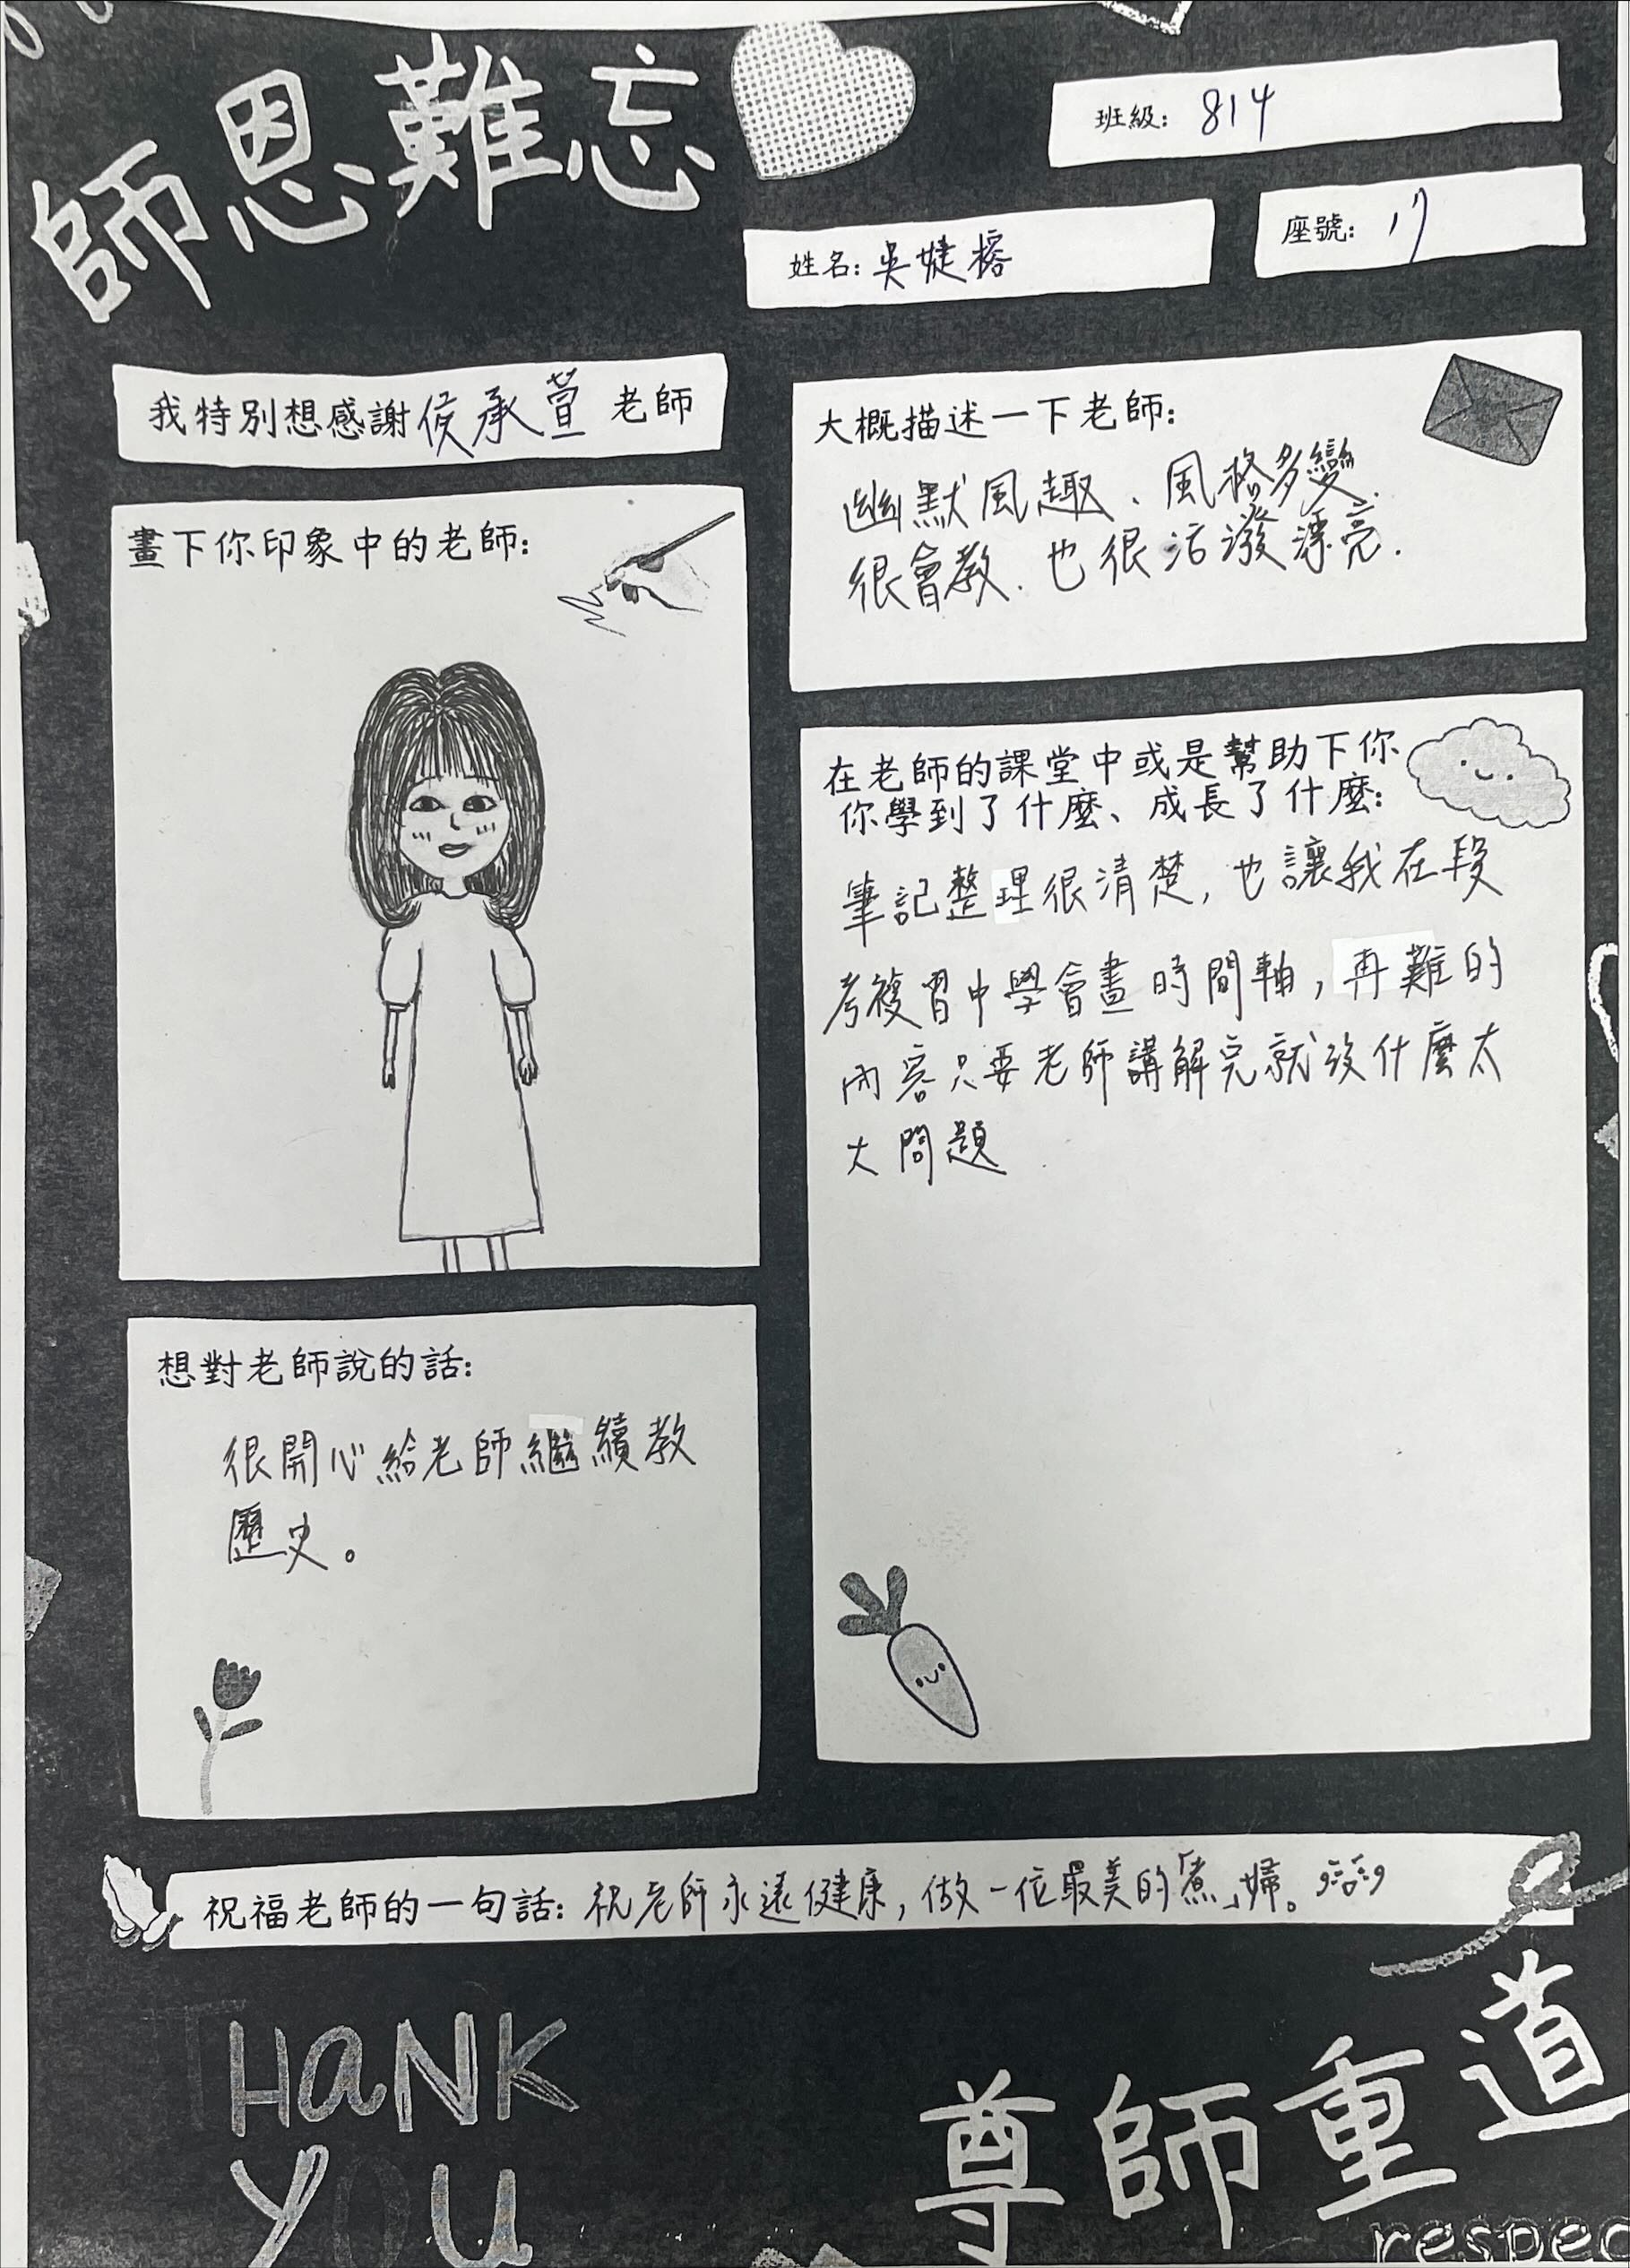 師恩難忘
班級: 814
姓名: 吳婕榕
座號: 17
我特別想感謝侯承萱 老師
大概描述一下老師:
幽默風趣、風格多變、
很會教、也很活潑漂亮.
畫下你印象中的老師:
在老師的課堂中或是幫助下你
你學到了什麼、成長了什麼:
筆記整理很清楚, 也讓我在段
考複習中學會畫時間軸, 再難的
內容只要老師講解完就沒什麼太
大問題
想對老師說的話:
很開心給老師繼續教
歷史。
祝福老師的一句話: 祝老師永遠健康, 做一位最美的「煮」婦。
THaNK
YOU
尊師重道
respec